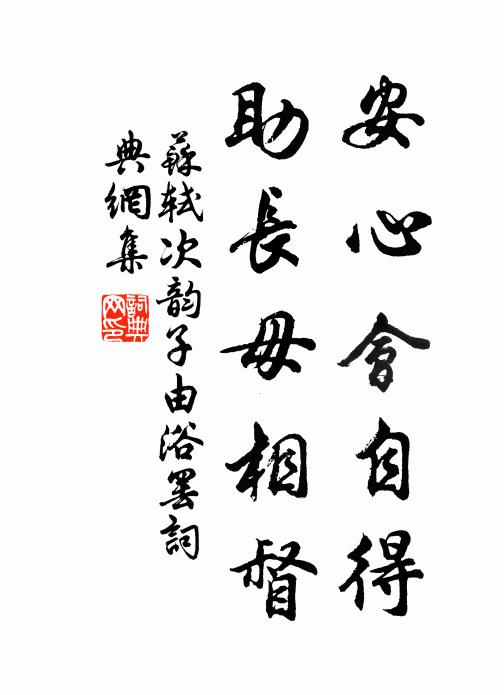 安心會自得
助長毋相督
蘇軾次韵子由浴罷詞
典網集
詞典網印